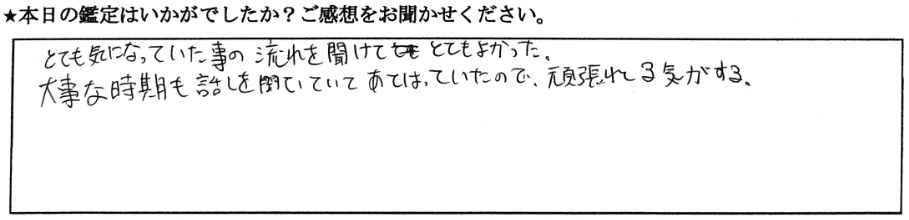 ★本日の鑑定はいかがでしたか？ご感想をお聞かせください。
とても気になっていた事の流れを聞けてとてもよかった。
大事な時期も話しを聞いていてあてはまっていたので、頑張れる気がする。